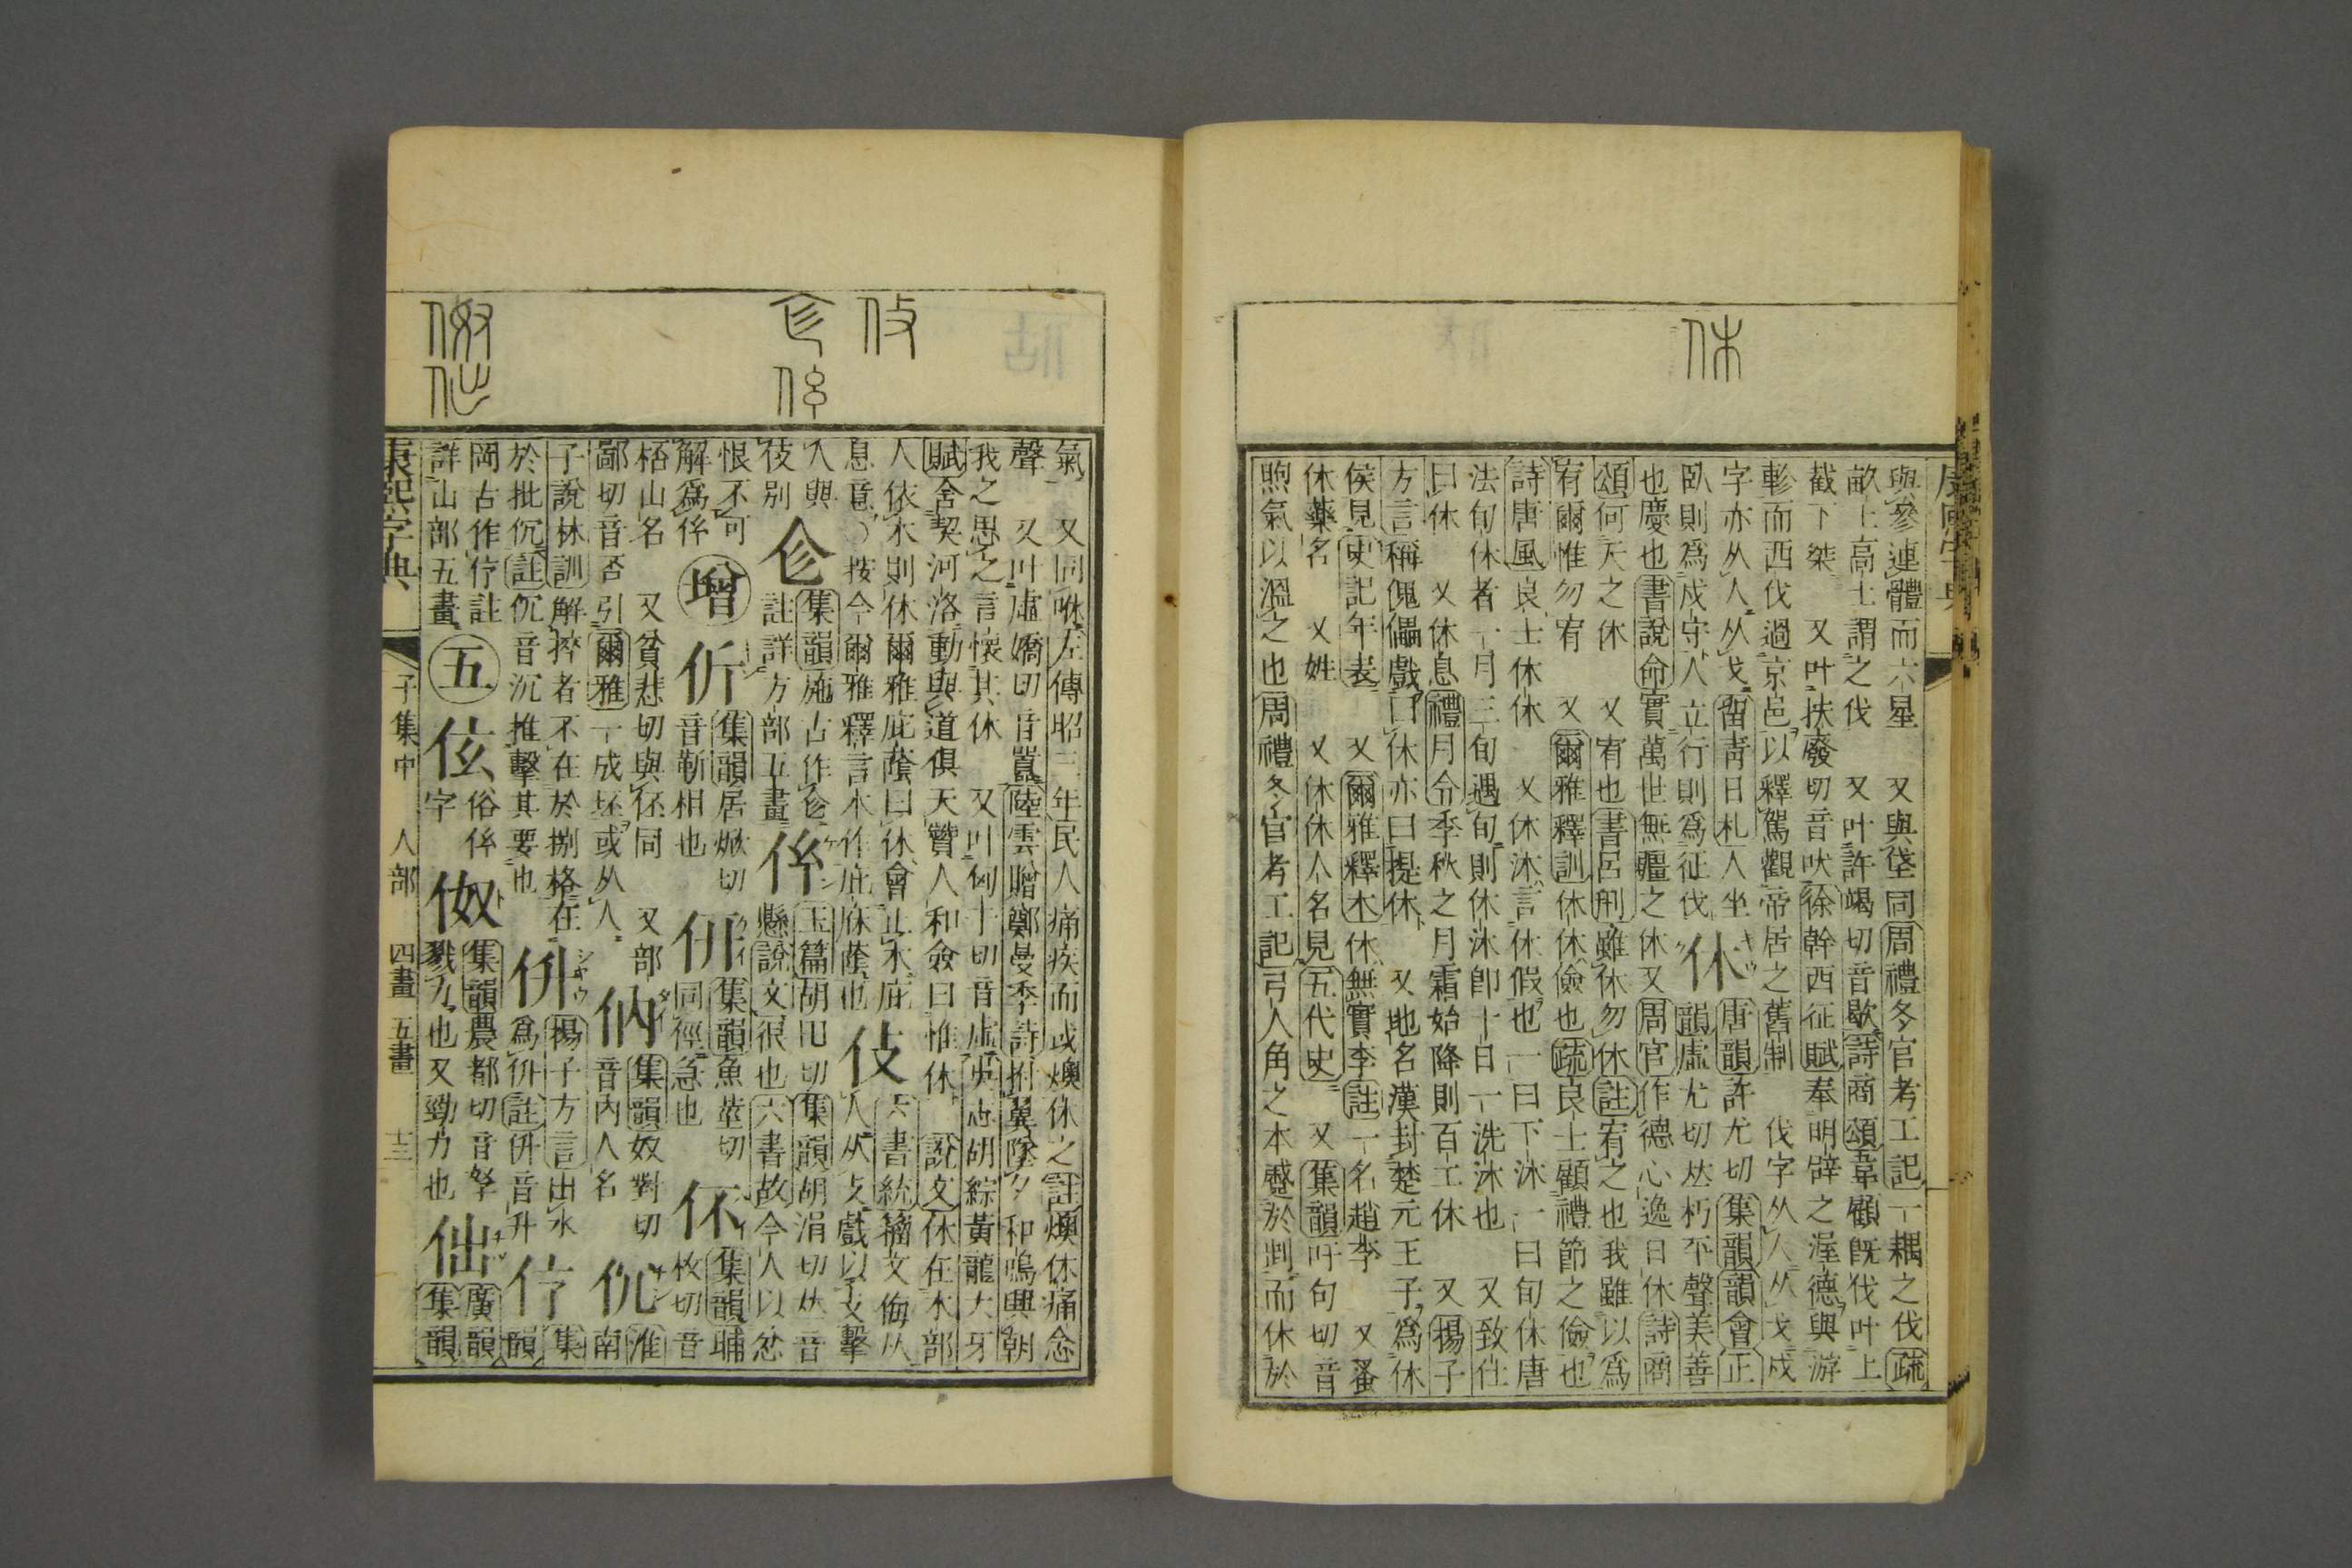 休
與參連體而六星　又與垡同周禮冬官考工記一耦之伐疏
畝上高土謂之伐　又叶許竭切音歇詩商頌韋顧旣伐叶上
截下桀　又叶扶廢切音吠徐幹西征賦奉明辟之渥德與游
軫而西伐過京邑以釋駕觀帝居之舊制　伐字从人从戈戍
字亦从人从戈畱靑日札人坐　唐韻許尤切集韻韻會正
臥則爲戍守人立行則爲征伐　休　韻虛尤切𠀤朽平聲美善
也慶也書說命實萬世無疆之休又周官作德心逸日休詩商
頌何天之休　又宥也書呂刑雖休勿休註宥之也我雖以爲
宥爾惟勿宥　又爾雅釋訓休休儉也疏良士顧禮節之儉也
詩唐風良士休休　又休沐言休假也一曰下沐一曰旬休唐
法旬休者一月三旬遇旬則休沐卽十日一洗沐也　又致仕
曰休　又休息禮月令季秋之月霜始降則百工休　又揚子
方言稱傀儡戲曰休亦曰提休　又地名漢封楚元王子爲休
侯見史記年表　又爾雅釋木休無實李註一名趙李　又蚤
休藥名　又姓　又休休人名見五代史　又集韻吁句切音
煦氣以溫之也周禮冬官考工記弓人角之本蹙於而休於
氣　又同咻左傳昭三年民人痛疾而或燠休之註燠休痛念
聲　又叶虛嬌切音囂陸雲贈鄭曼季詩拊翼墜夕和鳴興朝
我之思之言懷其休　又叶匈于切音虛吳志胡綜黃龍大牙
賦舍契河洛動與道俱天贊人和僉曰惟休　說文休在木部
人依木則休爾雅庇蔭曰休會止木庇　六書統籀文侮从
息意〇按今爾雅釋言本作庇庥蔭也　人从攴戲以攴擊
人與　集韻旒古作　玉篇胡切集韻胡涓切𠀤音
伎別　註詳方部五畫　懸說文很也六書故今人以忿
恨不可　集韻居焮切　集韻魚莖切　集韻哺
解爲　增　伒　音靳相也　同徑急也　伓　枚切音
桮山名　又貧悲切與伾同　又部　集韻奴對切　淮
鄙切音否引爾雅一成坯或从人　㐻　音內人名　南
子說林訓解捽者不在於捌格在　揚子方言出㲽　集
於批伔註伔音沉推擊其要也　爲註音升　韻
岡古作㑏註　俗　集韻農都切音孥　廣韻
詳山部五畫　五　伭　字　㐐　戮力也又勁力也　㑁　集韻
康熙字典　子集中　人部　四畫　五畫　十三